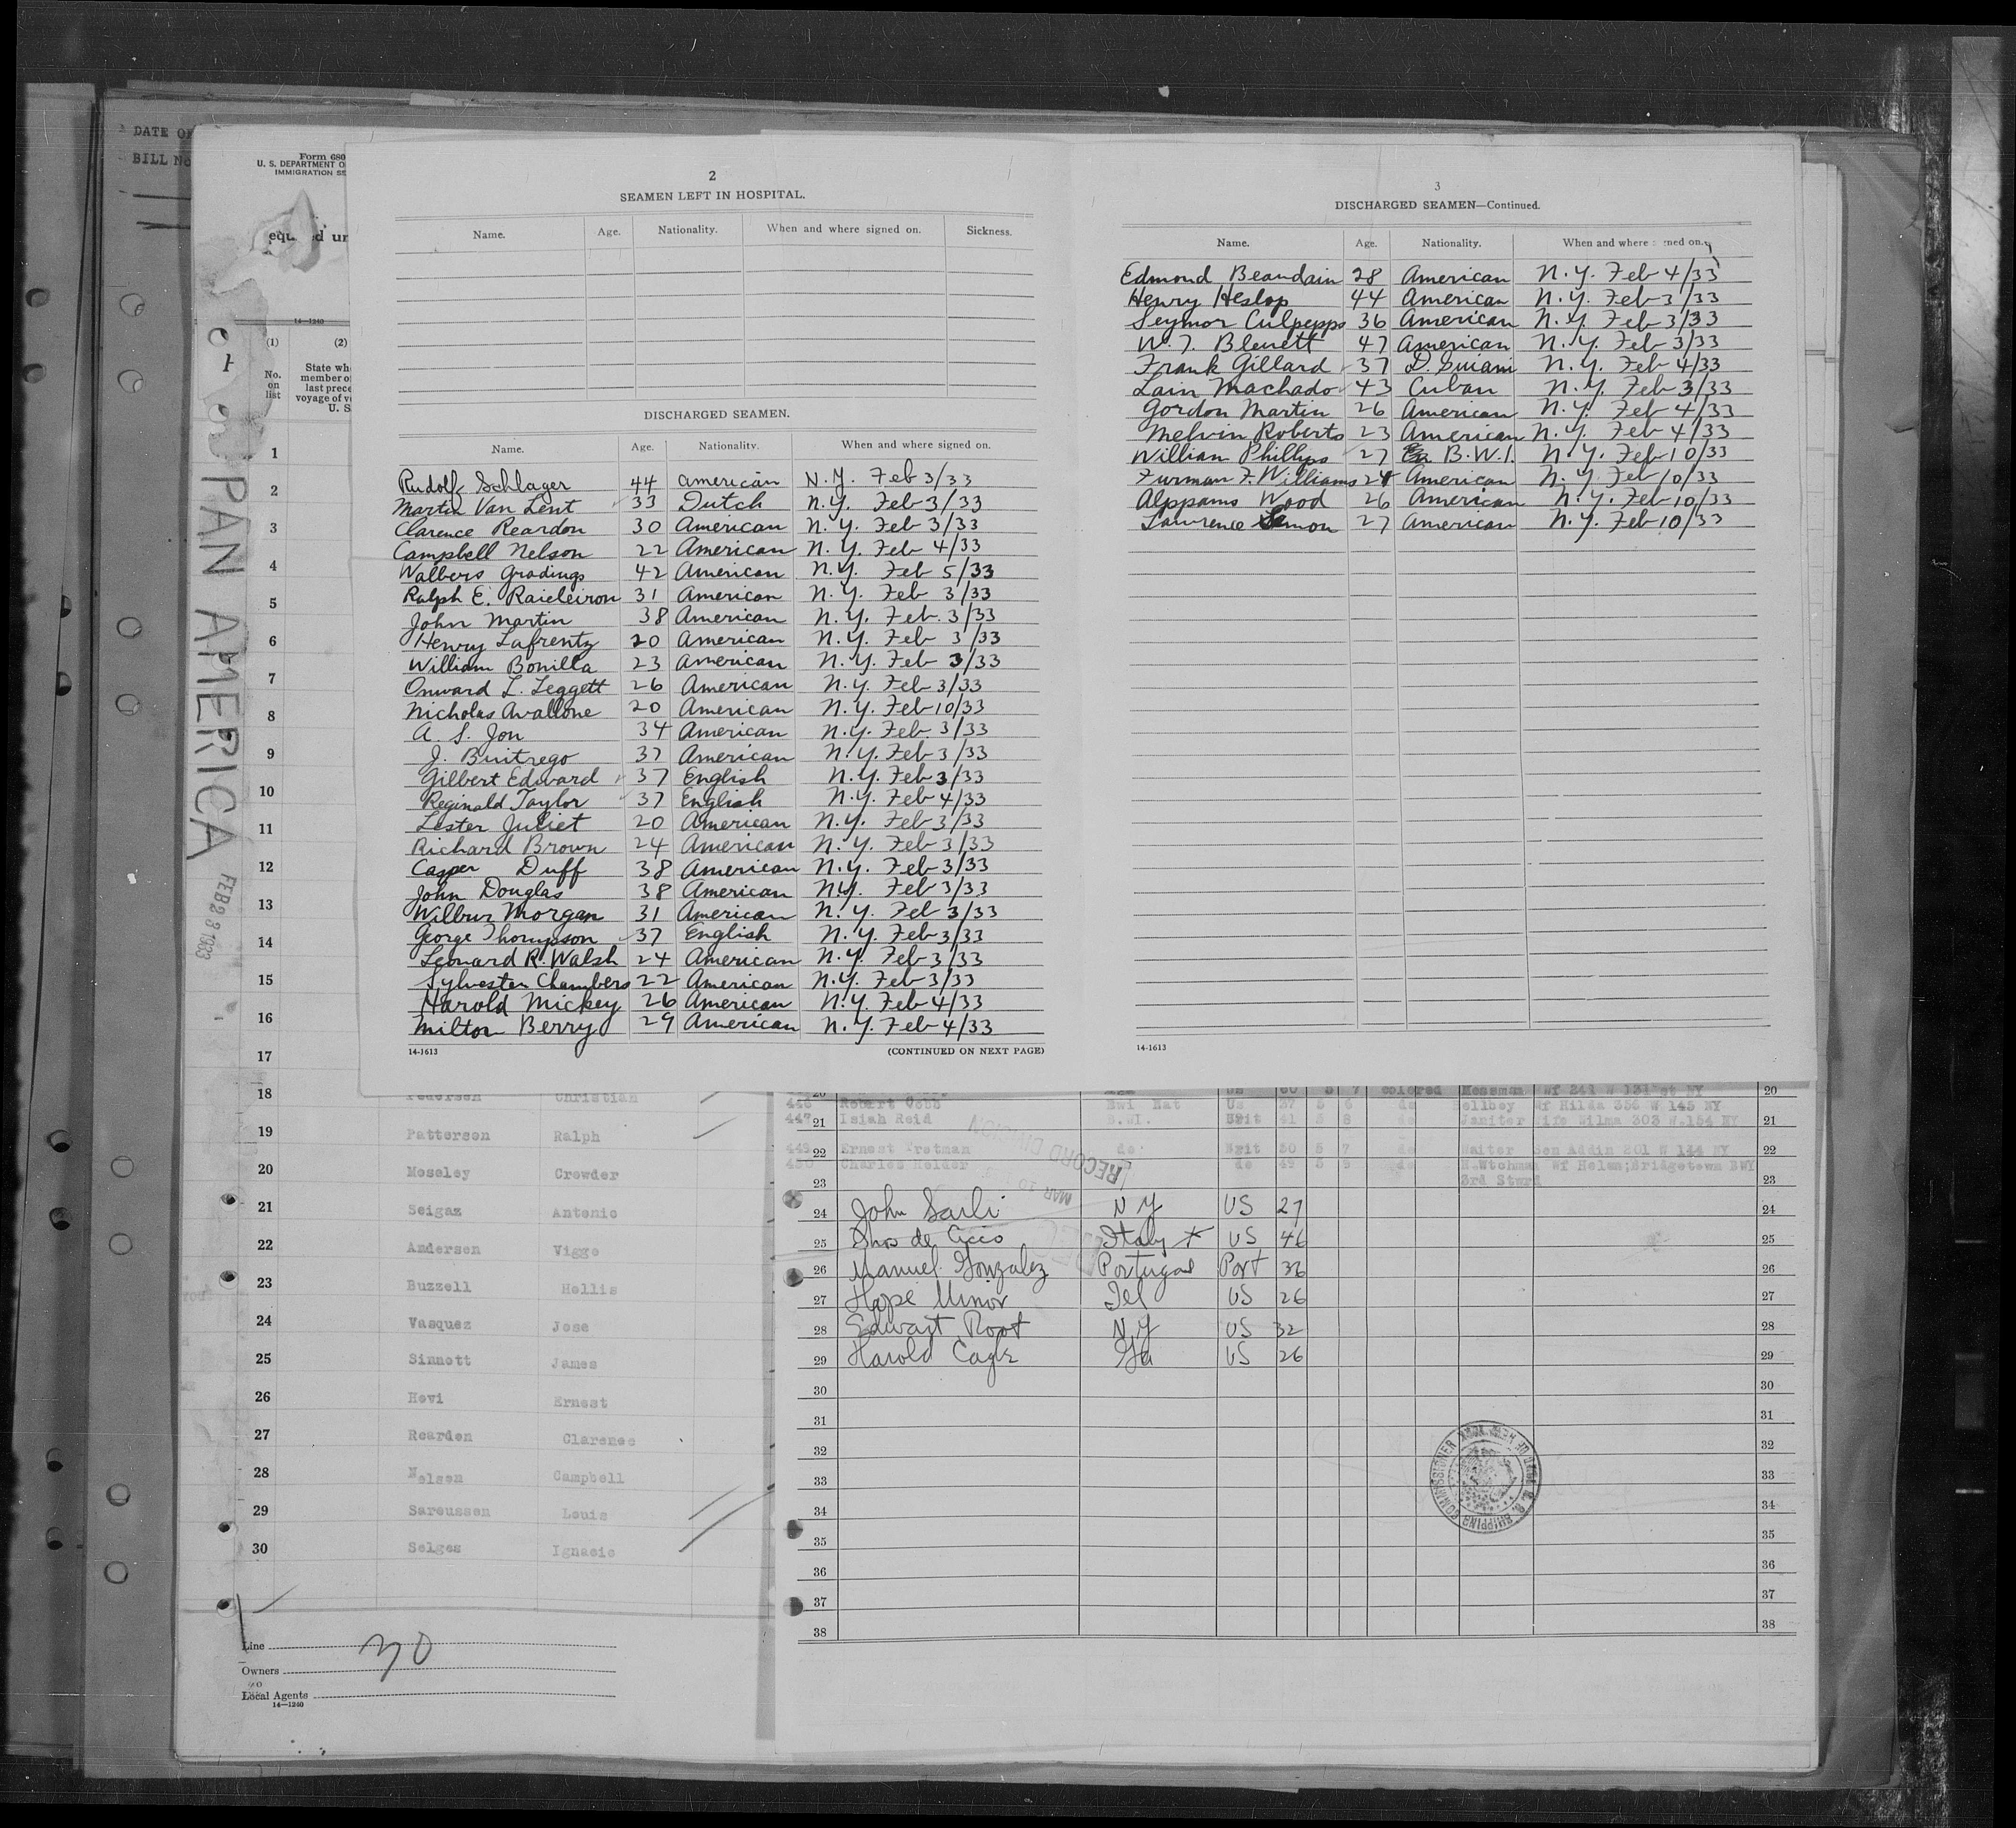 DATE OF
BILL No
Form 680
U. S. DEPARTMENT O
IMMIGRATION SE
equ d un
14—1240
(1) (2)
No. on list
State wh
member of
last prece
voyage of ve
U. S.
PAN AMERICA
FEB 28 1933
2
SEAMEN LEFT IN HOSPITAL.
Name. Age. Nationality. When and where signed on. Sickness.
DISCHARGED SEAMEN.
Name. Age. Nationality. When and where signed on.
Rudolf Schlager 44 American N.Y. Feb 3/33
Martin Van Lent 33 Dutch N.Y. Feb 3/33
Clarence Reardon 30 American N.Y. Feb 3/33
Campbell Nelson 22 American N.Y. Feb 4/33
Walbers Gradings 42 American N.Y. Feb 5/33
Ralph E. 31 American N.Y. Feb 3/33
John Martin 38 American N.Y. Feb. 3/33
Henry Lafrentz 20 American N.Y. Feb 3/33
William Bonilla 23 American N.Y. Feb 3/33
Onward L. Leggett 26 American N.Y. Feb 3/33
Nicholas Avallone 20 American N.Y. Feb 10/33
A. S. Jon 34 American N.Y. Feb. 3/33
J. Buitrego 37 American N.Y. Feb 3/33
Gilbert Edward 37 English N.Y. Feb 3/33
Reginald Taylor 37 English N.Y. Feb 4/33
Lester Juliet 20 American N.Y. Feb 3/33
Richard Brown 24 American N.Y. Feb 3/33
Casper Duff 38 American N.Y. Feb 3/33
John Douglas 38 American N.Y. Feb 3/33
Wilbur Morgan 31 American N.Y. Feb 3/33
George Thompson 37 English N.Y. Feb 3/33
Leonard R. Walsh 24 American N.Y. Feb 3/33
Sylvester Chambers 22 American N.Y. Feb 3/33
Harold Mickey 26 American N.Y. Feb 4/33
Milton Berry 29 American N.Y. Feb 4/33
14-1613 (CONTINUED ON NEXT PAGE)
3
DISCHARGED SEAMEN—Continued.
Name. Age. Nationality. When and where signed on.
Edmond Beaudain 28 American N.Y. Feb 4/33
Henry Heslop 44 American N.Y. Feb 3/33
Seymor Culpepps 36 American N.Y. Feb 3/33
W. T. Blewett 47 American N.Y. Feb 3/33
Frank Gillard 37 D. Guiani N.Y. Feb 4/33
Lain Machado 43 Cuban N.Y. Feb 3/33
Gordon Martin 26 American N.Y. Feb 4/33
Melvin Roberts 23 American N.Y. Feb 4/33
William Phillips 27 B.W.I. N.Y. Feb 10/33
Furman F. Williams 24 American N.Y. Feb 10/33
Alppams Wood 26 American N.Y. Feb 10/33
Lawrence Lemon 27 American N.Y. Feb 10/33
14-1613
1
2
3
4
5
6
7
8
9
10
11
12
13
14
15
16
17
18 Pedersen Christian
19 Patterson Ralph
20 Moseley Crowder
21 Seigaz Antonio
22 Andersen Vigge
23 Buzzell Hollis
24 Vasquez Jose
25 Sinnott James
26 Hovi Ernest
27 Rearden Clarence
28 Nelsen Campbell
29 Sareussen Louis
30 Selges Ignacio
Line 30
Owners
Local Agents
14—1240
20 US 60 5 7 colored Messman Wf 241 W 131 st NY 20
446 Robert Cobb Bwi Nat Us 37 5 6 do Bellboy Wf Hilda 356 W 145 NY
447 21 Isiah Reid B.WI. Brit 41 5 8 do Janitor Wife Wilma 303 W.154 NY 21
449 22 Ernest Trotman do Brit 30 5 7 do Waiter Son Addin 201 W 144 NY 22
450 Charles Holder do 49 5 9 do N.Wtchman Wf Helen;Bridgetown BWI
23 3rd Stwrd 23
RECORD DIVISION
MAR 10
24 John Sarli N Y US 27 24
25 Thos de Cicco Italy US 46 25
26 Manuel Gonzalez Portugal Port 36 26
27 Hope Minor Del US 26 27
28 Edwart Root N Y US 32 28
29 Harold Cagle Ga US 26 29
30 30
31 31
32 32
33 33
34 34
35 35
36 36
37 37
38 38
U. S. SHIPPING COMMISSIONER PORT OF NEW YORK